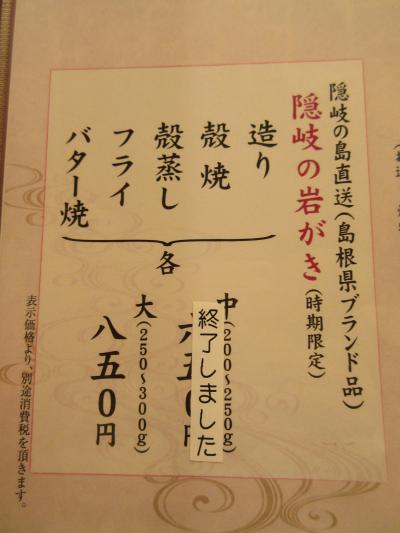 隠岐の島直送(島根県ブランド品)
隠岐の岩がき(時期限定)
造り
殻焼
殻蒸し
フライ
バター焼
各
中(200~250g)
六五〇円
終了しました
大(250~300g)
八五〇円
表示価格より、別途消費税を頂きます。